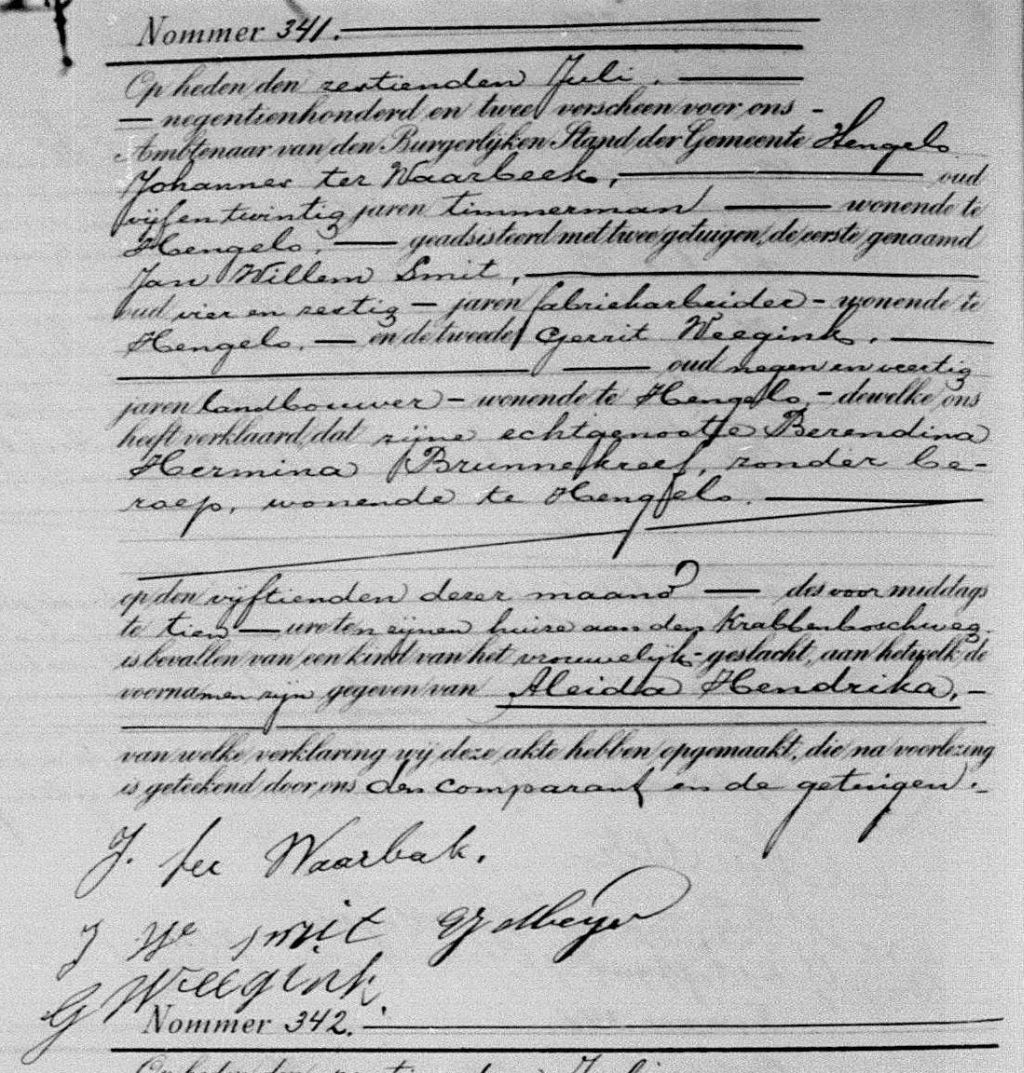 Nommer 341.
Op heden den zestienden Juli.
negentienhonderd en twee verscheen voor ons
Ambtenaar van den Burgerlijken Stand der Gemeente Hengelo
Johannes ter Waarbeek, oud
vijf en twintig jaren timmerman wonende te
Hengelo, geadsisteerd met twee getuigen, de eerste genaamd
Jan Willem Smit,
oud vier en zestig jaren fabriekarbeider wonende te
Hengelo, en de tweede Gerrit Weegink,
oud negen en veertig
jaren landbouwer wonende te Hengelo, dewelke ons
heeft verklaard, dat zijne echtgenoote Berendina
Hermina Brunnekreef, zonder be-
roep, wonende te Hengelo.
op den vijftienden dezer maand des voor middags
te tien ure ten zijnen huize aan den Krabbenboschweg
is bevallen van een kind van het vrouwelijk geslacht, aan hetwelk de
voornamen zijn gegeven van Aleida Hendrika,
van welke verklaring wij deze akte hebben opgemaakt, die na voorlezing
is geteekend door ons den comparant en de getuigen.
J. ter Waarbak.
J W smit
G Weegink.
Nommer 342.
Op heden den zestienden Juli